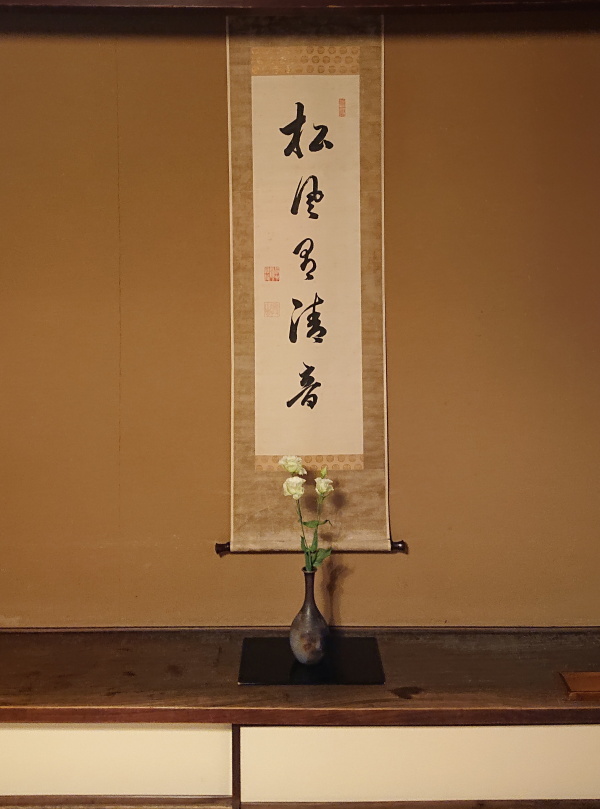 松風有清音